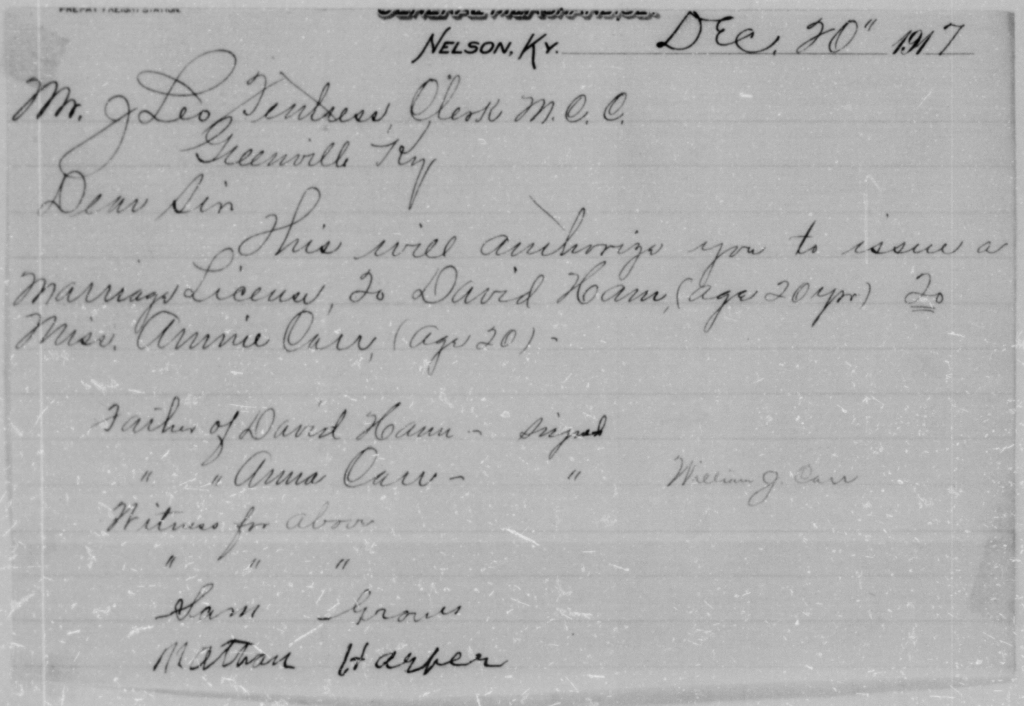 PREPAY FREIGHT STATION
GENERAL MERCHANDISE.
NELSON, KY. Dec. 20" 1917
Mr. J Leo Fentress, Clerk M. C. C.
Greenville Ky
Dear Sir
This will authorize you to issue a
Marriage License, To David Ham, (age 20 yrs) To
Miss. Annie Carr, (age 20) -
Father of David Hamm - signed
" " Anna Carr - " William J. Carr
Witness for above
" " "
Sam
Nathan Harper